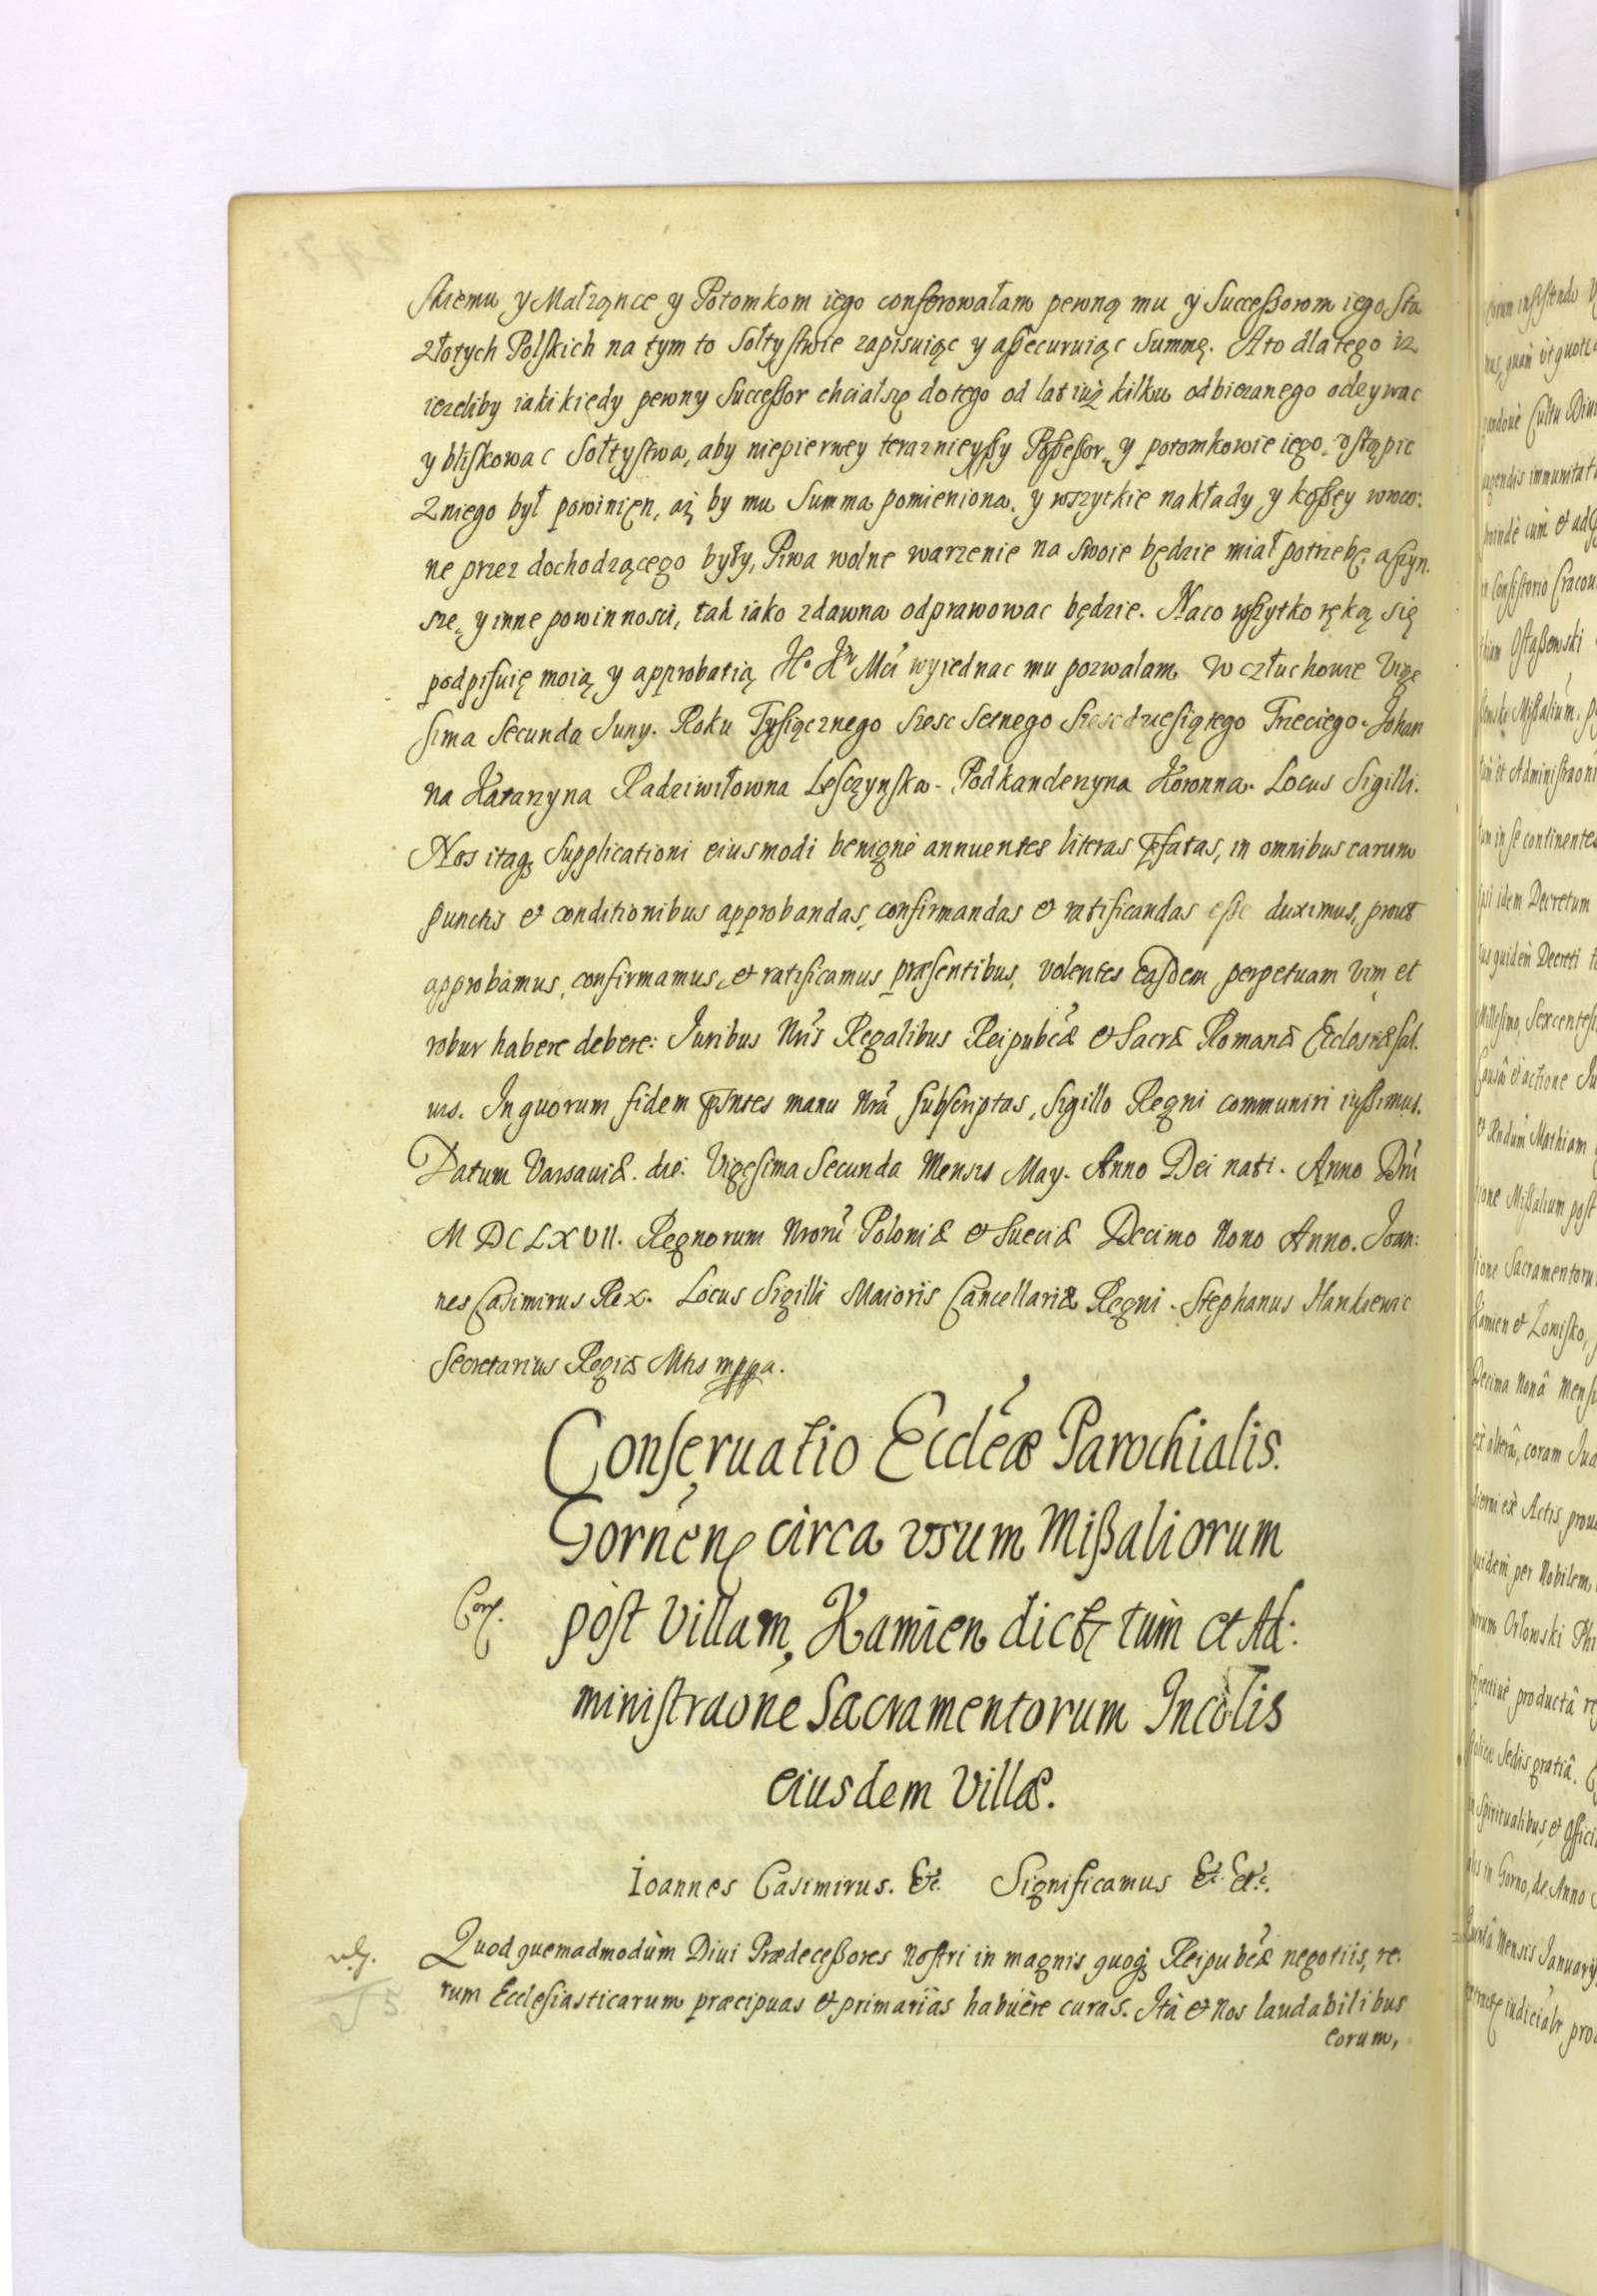 skiemu y Małząnce y Potomkom iego conferowałam pewną mu y Successorom iego sta
złotych Polskich na tym to Sołtystwie zapisuiąc y assecuruiąc Summę. A to dla tego iz
iezeliby iaki kiedy pewny Successor chciał się do tego od lat iuż kilku odbieżanego odzywac
y bliskowac Sołtystwa, aby niepierwey teraznieyszy Possessor, y potomkowie iego, ustąpic
z niego był powinien, aż by mu Summa pomieniona, y wszytkie nakłady y koszty wroco:
ne przez dochodzącego były, Piwa wolne warzenie na swoie będzie miał potrzebę, a szyn.
sze, y inne powinnosci, tak iako zdawna odprawowac będzie. Na co wszytko ręką się
podpisuię moią y approbatią Je Kr Mci wyiednac mu pozwalam. W człuchowie Vige
sima Secunda Juny. Roku Tysiącznego Szesc Setnego Szescdziesiątego Trzeciego. Johan
na Katarzyna Radziwiłowna Lesczynska. Podkanclerzyna Koronna. Locus Sigilli.
Nos itaq, Supplicationi eiusmodi benignè annuentes literas pfatas, in omnibus earum
punctis et conditionibus approbandas, confirmandas et ratificandas esse duximus, prout
approbamus, confirmamus, et ratificamus præsentibus, volentes easdem perpetuam vim et
robur habere debere: Juribus Nris Regalibus Reipubcæ et Sacræ Romanæ Ecclesiæ sal.
uis. In quorum fidem psntes manu Nrâ subscriptas, Sigillo Regni communiri iussimus.
Datum Varsauiæ. die. Vigesima Secunda Mensis May. Anno Dei nati. Anno Dni
M DC LX VII. Regnorum Nrorũ Poloniæ et Sueciæ Decimo Nono Anno. Joan:
nes Casimirus Rex. Locus Sigilli Maioris Cancellariæ Regni. Stephanus Hankiewic
Secretarius Regiæ Mtis mppa.
Conseruatio Eccleæ Parochialis.
Gornen circa vsum Missaliorum
Conf. pòst Villam, Kamien dict tùm et Ad:
ministraone Sacramentorum Incolis
eiusdem Villæ.
Ioannes Casimirus. &c. Significamus &c. &c.
Quod quemadmodùm Diui Prædecessores Nostri in magnis quoq Reipubcæ negotiis, re:
rum Ecclesiasticarum præcipuas et primarias habuère curas. Ità et Nos laudabilibus
eorum,